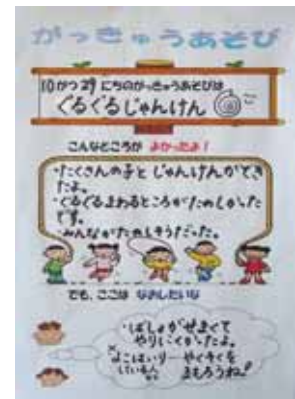 がっきゅうあそび
10がつ29にちのがっきゅうあそびは
ぐるぐるじゃんけん
こんなところが よかったよ!
・たくさんの子とじゃんけんができ
たよ。
・ぐるぐるまわるところがたのしかった
です。
・みんながたのしそうだった。
でも、ここは なおしたいな
・ばしょがせまくて
やりにくかったよ。
よこはいり
やくそくを
まもろうね!